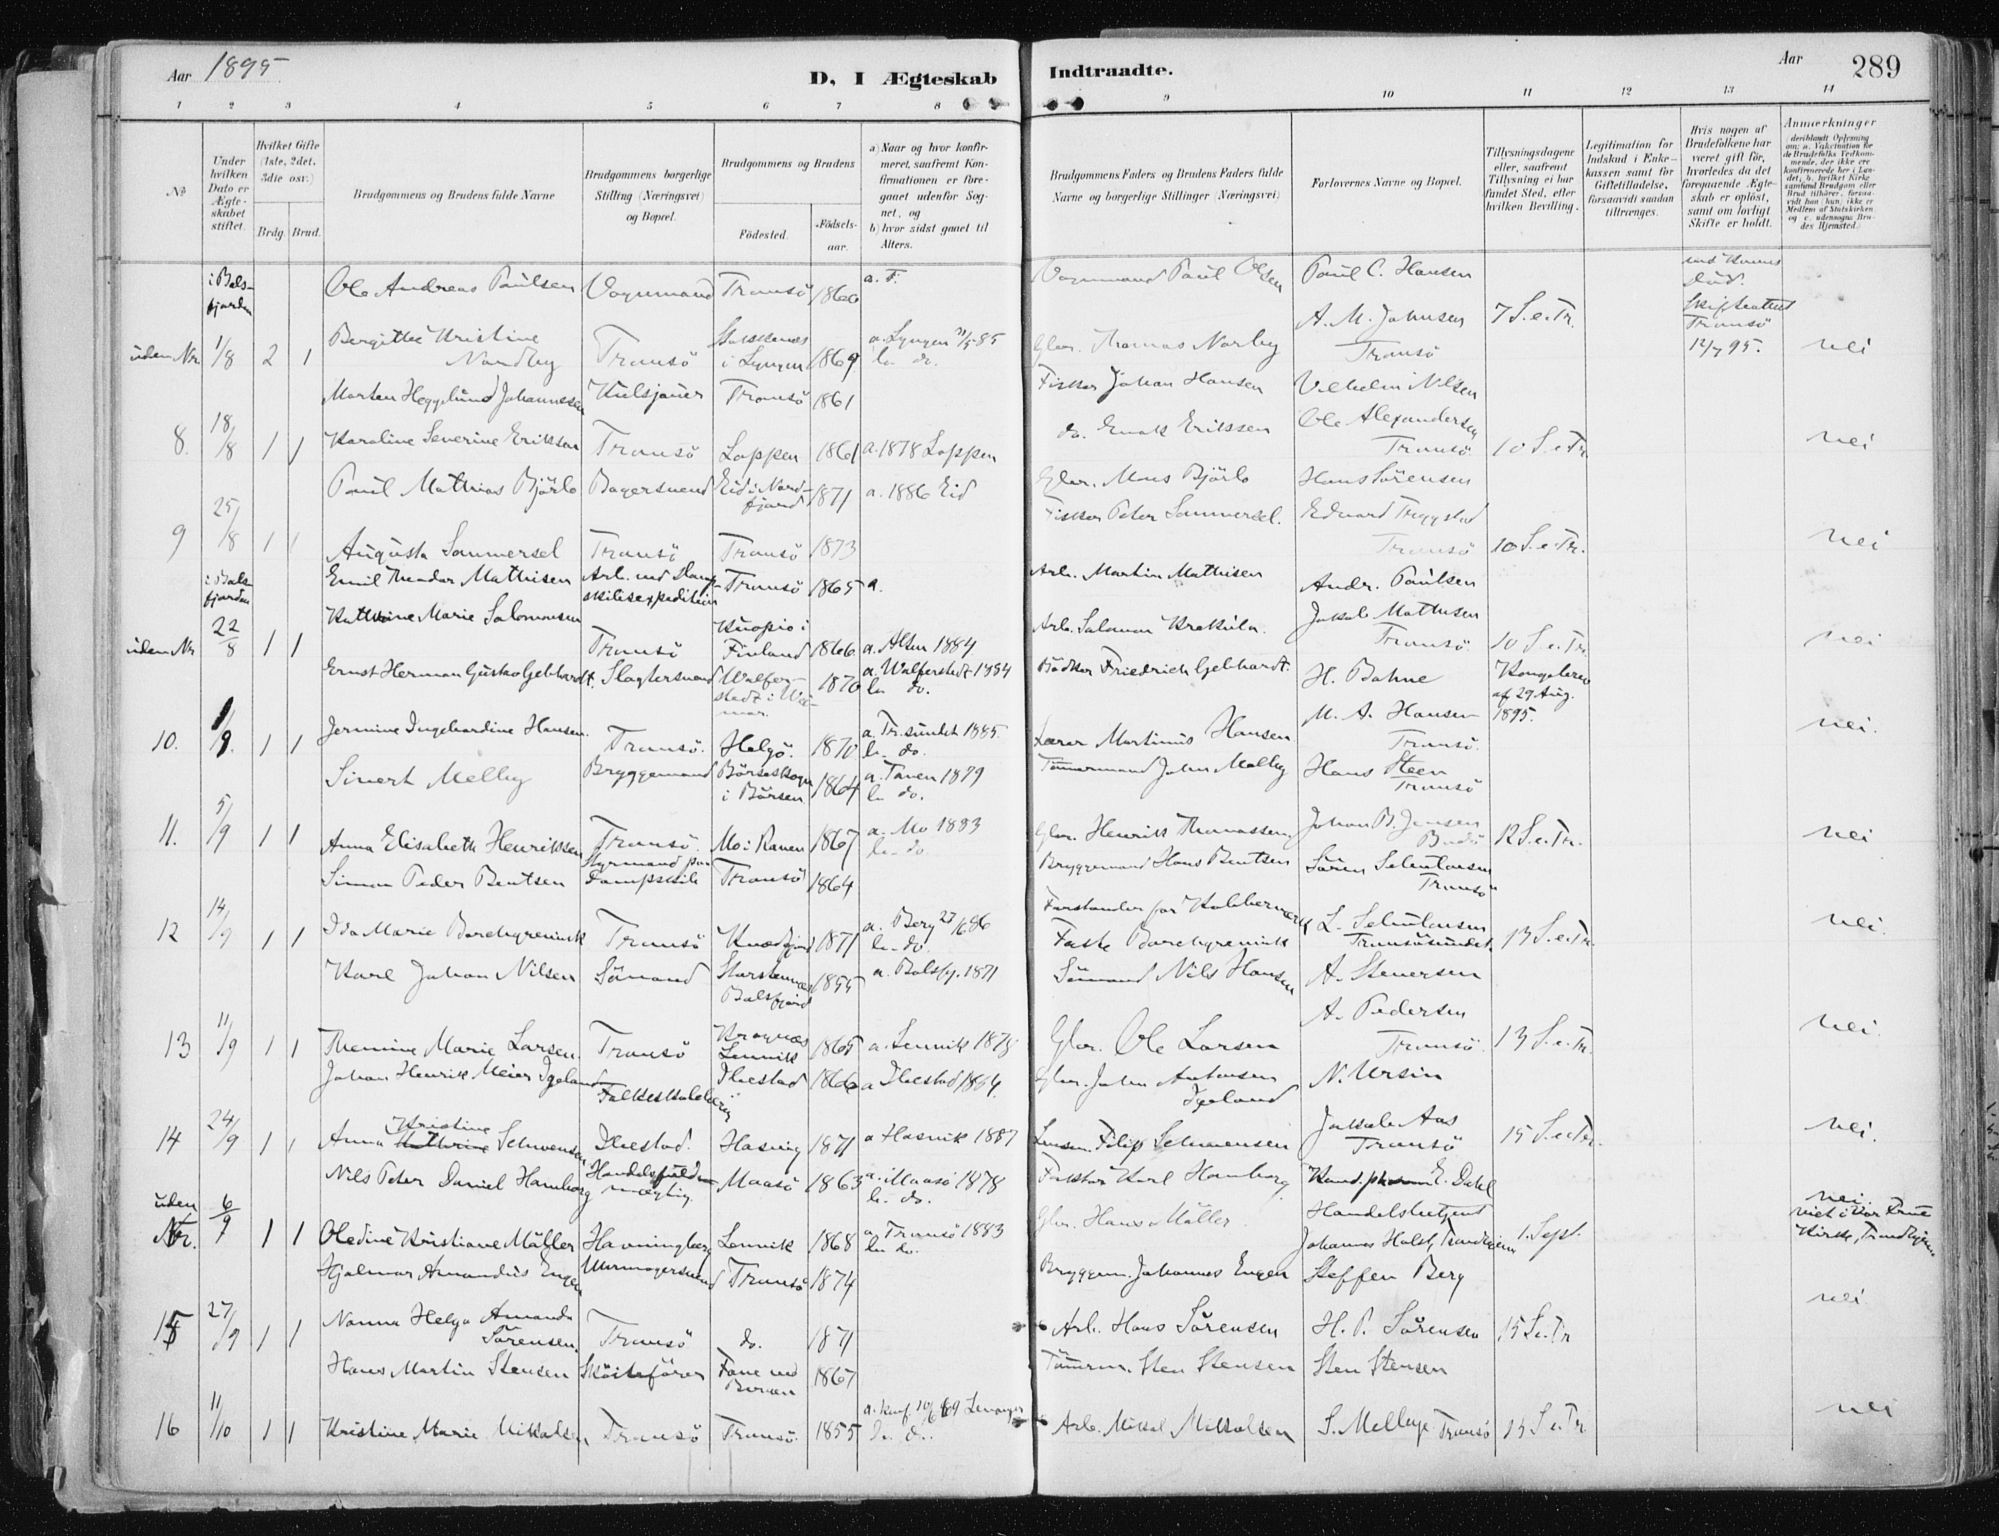 Aar 1895
D, I Ægteskab Indtraadte.
Aar 289
1 2 3 4 5 6 7 8 9 10 11 12 13 14
No
Under hvilken Dato er Ægteskabet stiftet.
Hvilket Gifte (1ste, 2det, 3die osv.)
Brdg. Brud.
Brudgommens og Brudens fulde Navne
Brudgommens borgerlige Stilling (Næringsvei) og Bopæl.
Brudgommens og Brudens
Födested. Födselsaar.
a) Naar og hvor konfirmeret, saafremt Konfirmationen er foregaaet udenfor Sognet, og
b) hvor sidst gaaet til Alters.
Brudgommens Faders og Brudens Faders fulde Navne og borgerlige Stillinger (Næringsvei)
Forlovernes Navne og Bopæl.
Tillysningsdagene eller, saafremt Tillysning ei har fundet Sted, efter hvilken Bevilling.
Legitimation for Indskud i Enkekassen samt for Giftetilladelse, forsaavidt saadan tiltrænges.
Hvis nogen af Brudefolkene har været gift för, hvorledes da det foregaaende Ægteskab er oplöst, samt om lovligt Skifte er holdt.
Anmærkninger
i Balsfjorden Ole Andreas Paulsen Vognmand Tromsö 1860 a. T. Vognmand Paul Olsen Paul C. Hansen
uden Nr. 1/8 2 1 Bergitte Kristine Nordby Tromsö i Lyngen 1869 a. Lyngen 85 b. do. Gbr. Thomas Norby A. M. Johnsen Tromsö 7 S. e. Tr. Skifteattest Tromsö 12/7 95. nei
Morten Heggelund Johannessen Kulsjauer Tromsö 1861 Fisker Johan Hansen Vilhelm Nilsen
8. 18/8 1 1 Karoline Severine Eriksen Tromsö Loppen 1861 a. 1878 Loppen do. Enok Erikssen Ole Alexandersen Tromsö 10 S. e. Tr. nei
Paul Mathias Bjørlo Bagersvend Eid i Nordfjord 1871 a. 1886 Eid Gbr. Mons Björlo Hans Sörensen
9 25/8 1 1 Augusta Sommersel Tromsö Tromsö 1873 Fisker Peter Sommersel. Edvard Tryggstad Tromsö 10 S. e. Tr. nei
i Balsfjorden Emil Theodor Mathisen Arb. ved Dampskibsexpedition Tromsö 1865 a. Arb. Martin Mathisen Andr. Paulsen
uden Nr 22/8 1 1 Kathrine Marie Salomonsen Tromsö Kuopio i Finland 1866 a. Alten 1884 Arb. Salomon Krekula. Jakob Mathisen Tromsö. 10 S. e. Tr. nei
Ernst Herman Gusko Gebhardt. Slagtersvend Walferstedt i Weimar. 1870 a. Walferstedt 1884 b. do. Bödker Friedrich Gebhardt. H. Bahne Kongebrev af 29 Aug. 1895.
10. 1/9. 1 1 Jermine Ingebordine Hansen. Tromsö. Helgö. 1870 a. Tr.sundet 1885 b. do. Lærer Martinus Hansen M. A. Hansen Tromsö. nei.
Sivert Melby Bryggemand Börseskogn i Börsen 1864 a. Tanen 1879 b. do. Tömmermand John Melby Hans Steen Tromsö
11. 5/9 1 1 Anna Elisabeth Henriksen Tromsö. Mo i Ranen 1867 a. Mo 1883 b. do Gbr. Henrik Thomassen Johan B. Jensen Bodö 12 S. e. Tr. nei
Simon Peder Bentsen Styrmand paa Dampskib Tromsö 1864 Bryggemand Hans Bentsen Sören
Tromsö
12 14/9 1 1 Ida Marie Borchgrevink Tromsö Kvædfjord 1871 a. Berg 86 b. do. Forstander for Kobberværk Faste Borchgrevink L. Tromsösundet. 13 S. e. Tr. nei.
Karl Johan Nilsen Sömand Balsfjord 1855 a. Balsfj. 1871 Sömand Nils Hansen A. Stenersen
13 11/9 1 1 Themine Marie Larsen. Tromsö Lenvik 1865 a. Lenvik 1878 Gbr. Ole Larsen A. Pedersen Tromsö. 13 S. e. Tr. nei.
Johan Henrik Meier Igeland Ibestad 1866 a Ibestad 1884. Gbr. John Antonsen Igeland N. Ursin
14 24/9 1 1 Anna Kristine Ibestad. Hasvig 1871 a Hasvik 1887 Filip Jakob Aas Tromsö 15 S. e. Tr. nei.
Nils Peter Daniel Hamborg Handelsfuldmægtig Maasö 1863 a. Maasö 1878 b. do. Faktor Karl Hamborg E. Dahl
uden Nr. 6/9 1 1 Oledine Kristiane Möller Havningberg Lenvik 1868 a. Tromsö 1883 b. do. Gbr. Hans Möller Handelsbetjent Johannes Holst, Trondhjem 1. Sept. nei. viet i Vor Frue Kirke, Trondhjem
Hjalmar Amandus Engen Urmagersvend Tromsö 1874 Bryggem. Johannes Engen Steffen Berg
15 27/9 1 1 Nanna Helga Amanda Sörensen. Tromsö do. 1871 Arb. Hans Sörensen H. P. Sörensen 15 S. e. Tr nei
Hans Martin Stensen Sköiteförer 1867 Tömrm. Sten Stensen Sten Stensen
16 11/10 1 1 Kristine Marie Mikalsen Tromsö Tromsö 1855 a. konf 10/6 69 b. do. Arb. Mikal Mikalsen S. Tromsö 15 S. e. Tr nei